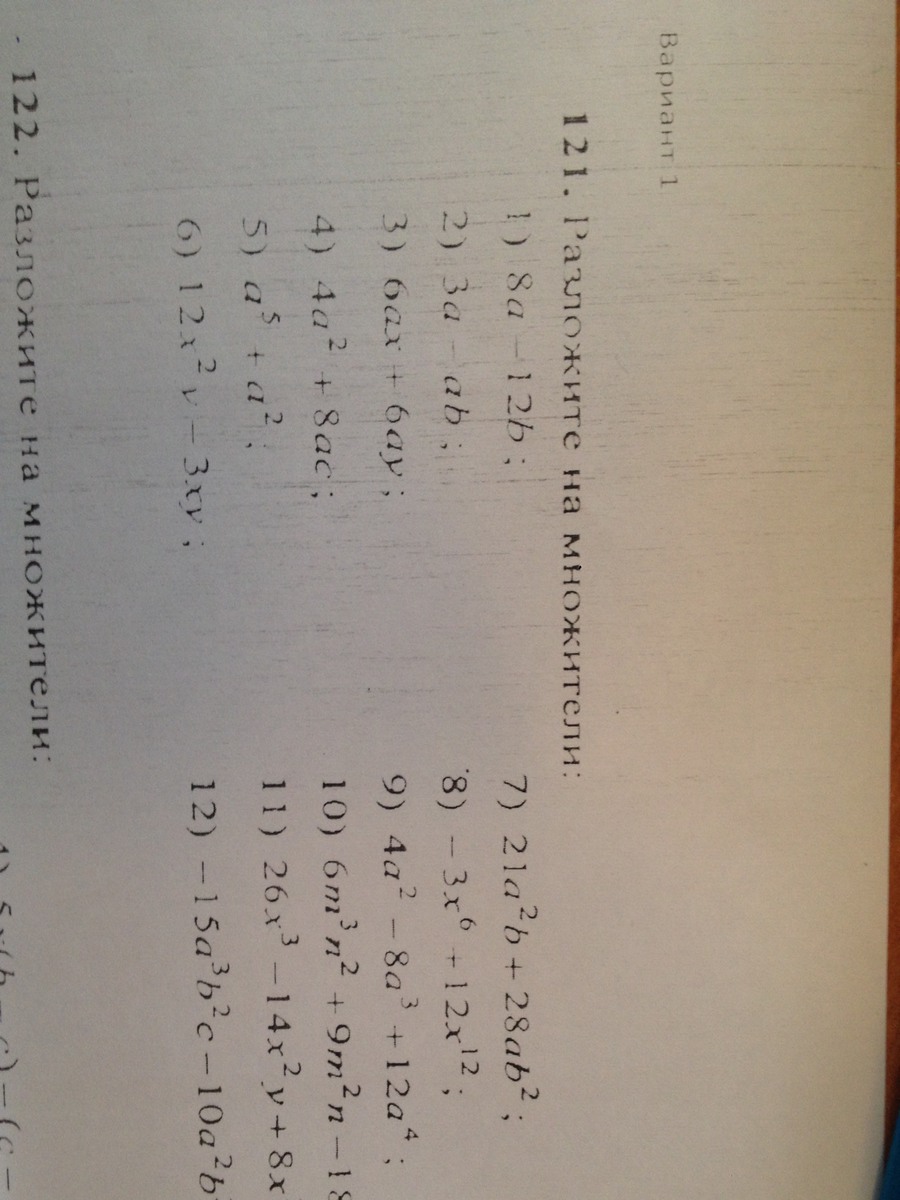 Вариант 1
121. Разложите на множители:
1) 8a – 12b;
2) 3a – ab;
3) 6ax + 6ay;
4) 4a² + 8ac;
5) a⁵ + a²;
6) 12x²y – 3xy;
7) 21a²b + 28ab²;
8) –3x⁶ + 12x¹²;
9) 4a² – 8a³ + 12a⁴;
10) 6m³n² + 9m²n – 18
11) 26x³ – 14x²y + 8x
12) –15a³b²c – 10a²b
122. Разложите на множители: